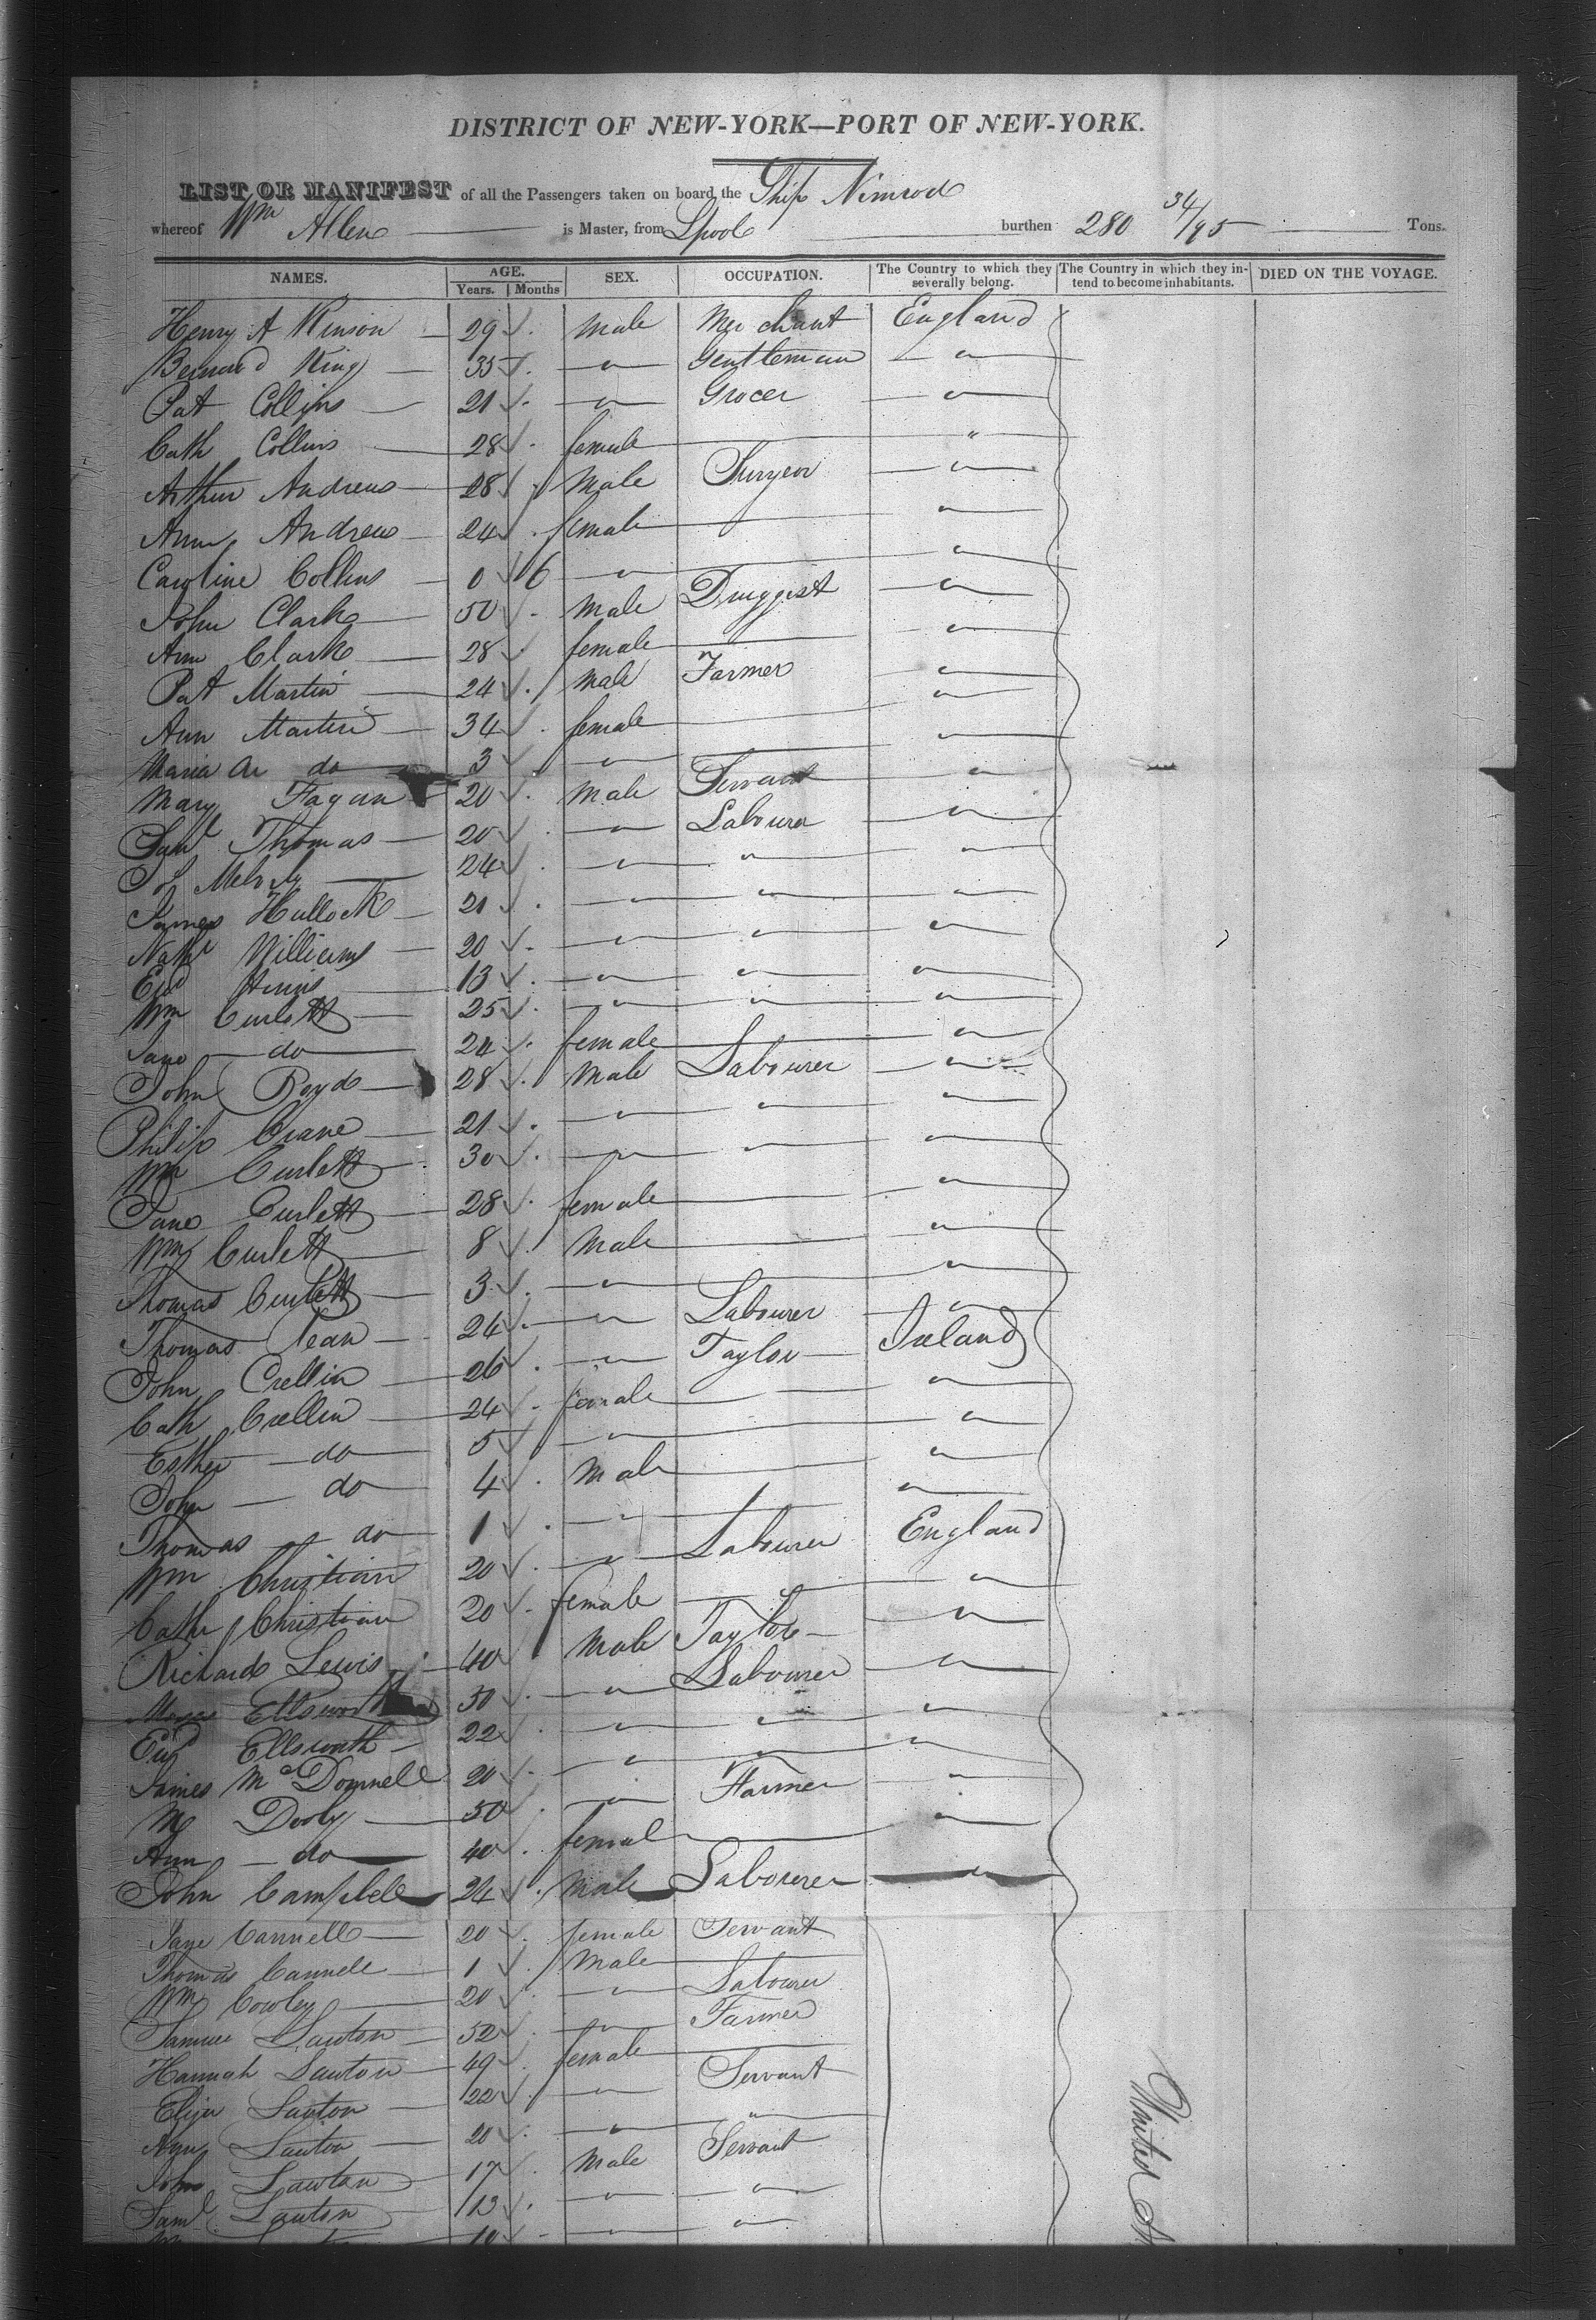 DISTRICT OF NEW-YORK—PORT OF NEW-YORK.
LIST OR MANIFEST of all the Passengers taken on board the Ship Nimrod
whereof Wm Allen is Master, from Lpool burthen 280 34/95 Tons.
NAMES. AGE. Years. Months SEX. OCCUPATION. The Country to which they severally belong. The Country in which they intend to become inhabitants. DIED ON THE VOYAGE.
Henry A 29 Male Merchant England
Bernard King 35 " Gentleman "
Pat Collins 21 " Grocer "
Cath Collins 28 female "
Arthur Andrews 28 Male Surgeon "
Ann Andrews 24 female "
Caroline Collins 0 6 " "
John Clark 50 Male Druggist "
Ann Clark 28 female "
Pat Martin 24 Male Farmer "
Ann Martin 34 female "
Maria do 3 " "
Mary Fagan 20 Male Servant "
Saml Thomas 20 " Labourer "
24 " " "
James Hullock 21 " " "
Nathl Williams 20 " " "
Ed 13 " " "
Wm Curlett 25 " " "
Jane do 24 female "
John Boyd 28 Male Labourer "
Philip Crane 21 " " "
Wm Curlett 30 " " "
Jane Curlett 28 female "
Wm Curlett 8 Male "
Thomas Curlett 3 " "
Thomas 24 " Labourer "
John Crellin 26 " Taylor Ireland
Cath Crellin 24 female "
Esther do 5 " "
John do 4 Male "
Thomas do 1 " "
Wm Christian 20 " Labourer England
Cath Christian 20 female "
Richard Lewis 40 Male Taylor "
Ellsworth 30 " Labourer "
Ed Ellsworth 22 " " "
James McDonnell 20 " " "
Dooly 50 " Farmer "
Ann do 40 female "
John Campbell 24 Male Labourer "
Jane Cannell 20 female Servant
Thomas Cannell 1 Male
Wm Cowley 20 " Labourer
Samuel Lawton 52 " Farmer
Hannah Lawton 49 female
Eliza Lawton 22 " Servant
Ann Lawton 20 " "
John Lawton 17 Male Servant
Saml Lawton 13 " "
10 " "
United